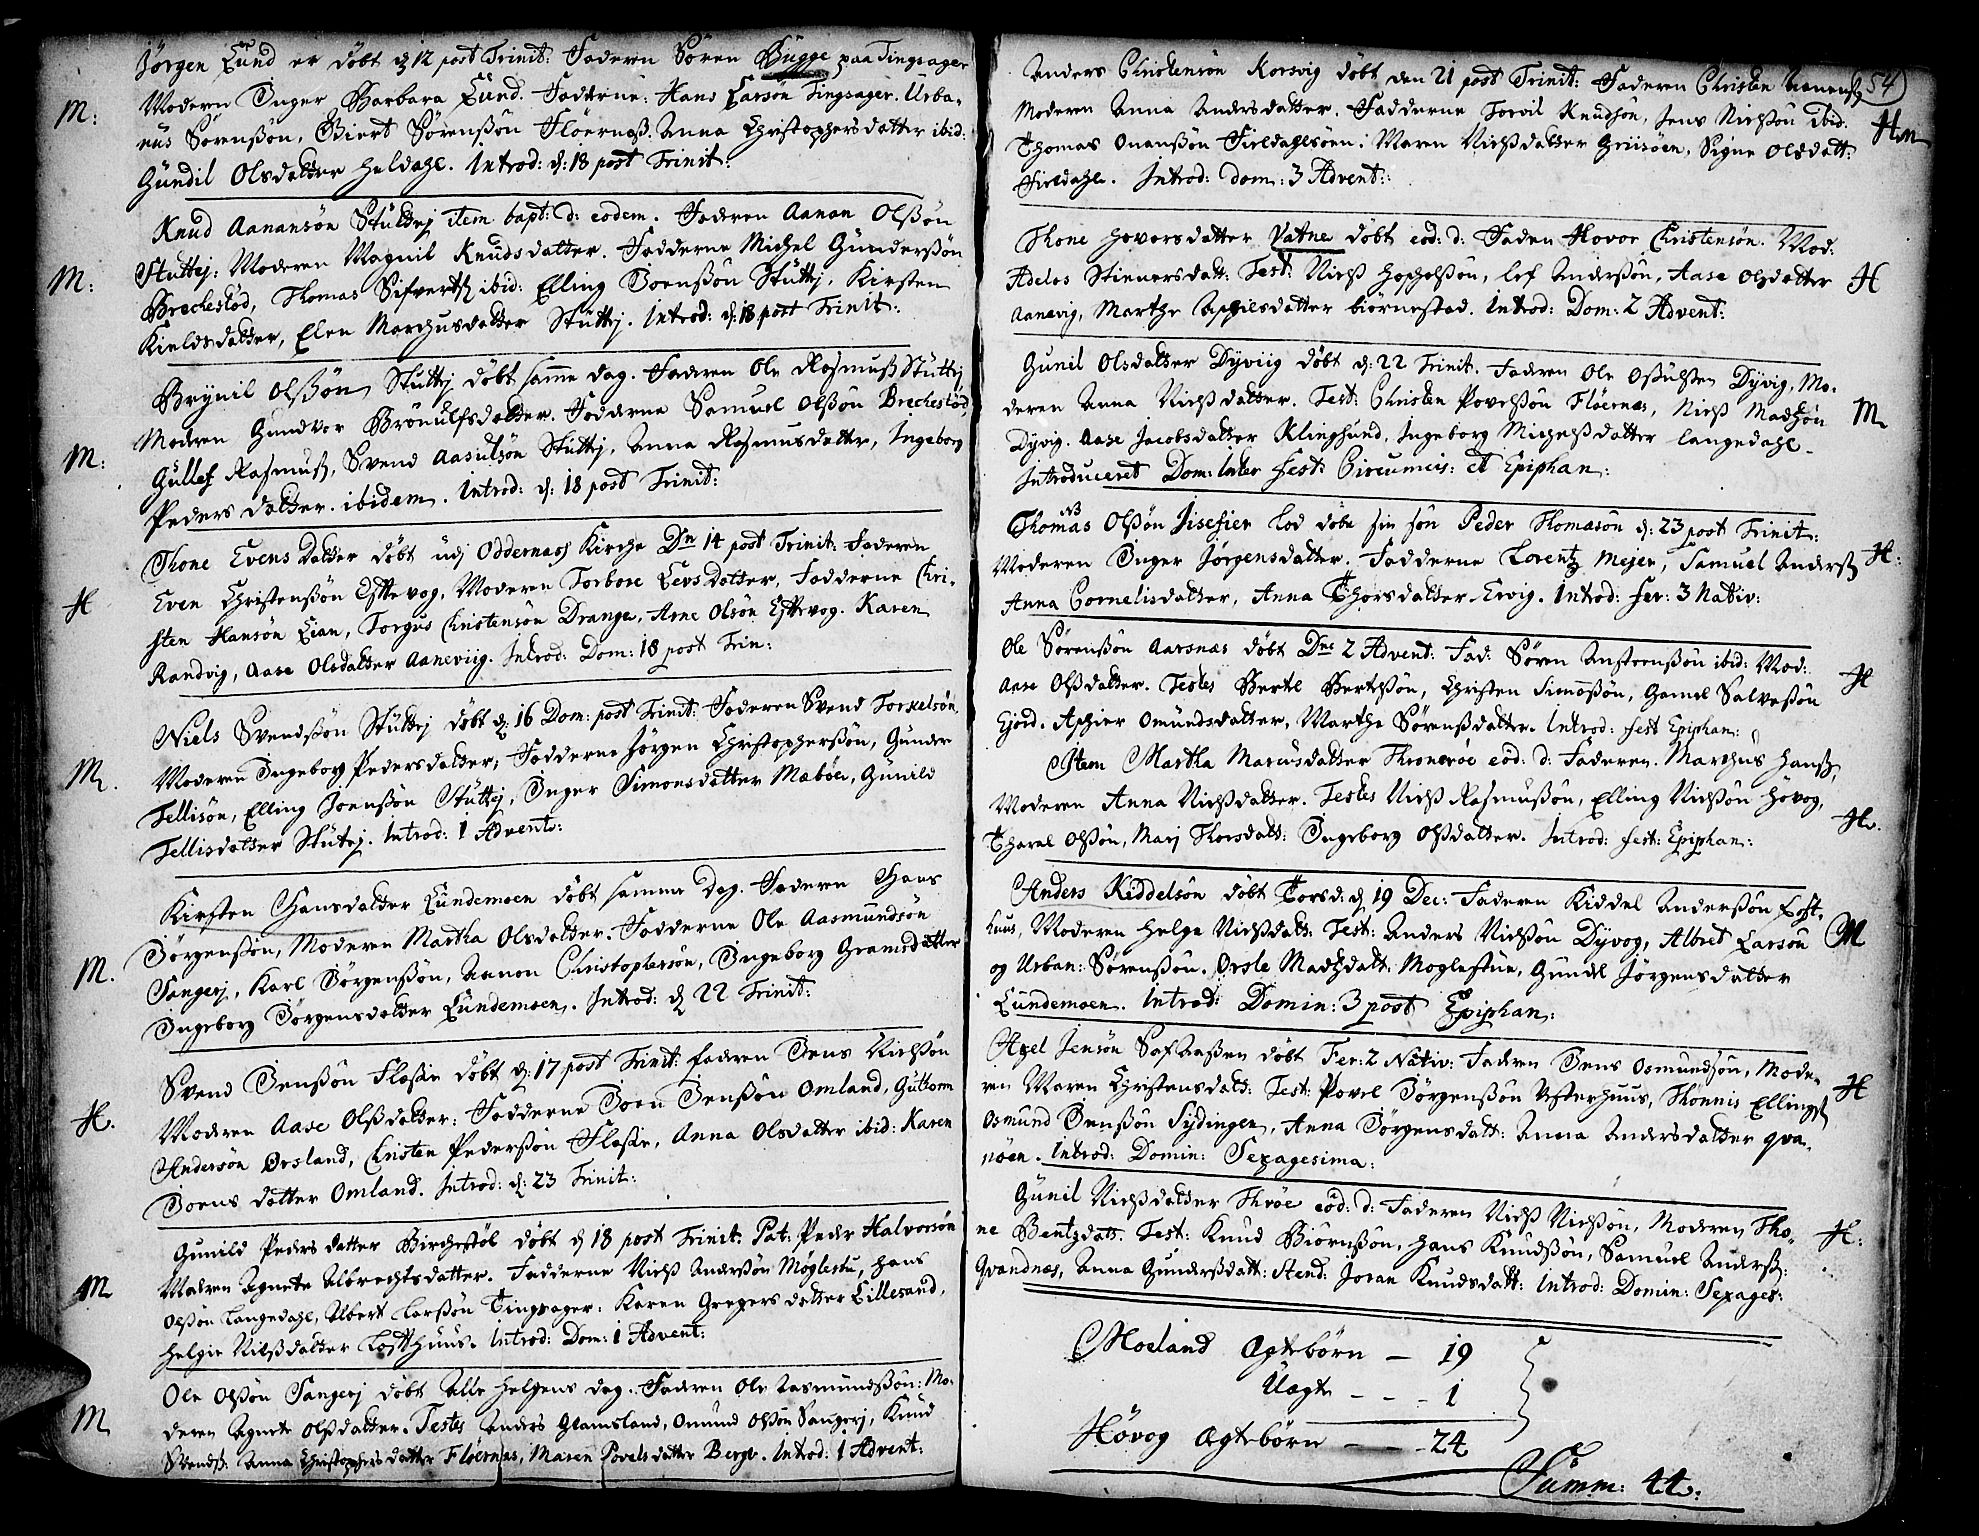 Jörgen Lund er döbt d: 12 post Trinit: Faderen Sören Bugge paa Tingsager
M: Moderen Inger Barbara Lund. Fadderne: Hans Larsön Tingsager. Urba-
nus Sörensßön, Biert Sörensßön Flöernæß. Anna Christophersdatter ibid:
Gundil Olsdatter Heldahl. Introd: d: 18 post Trinit:
Knud Aanansön Stuttej item bapt: d: eodem. Faderen Aanan Olßön
M: Stuttej: Moderen Magnil Knudsdatter. Fadderne Michel Gunderßön
Brechestöd, Thomas Sifverts ibid: Elling Joenßön Stuttej, Kirsten
Kieldsdatter, Elen Marchusdatter Stuttej. Introd: d: 18 post Trinit:
Brynil Olßön Stuttej döbt samme dag. Faderen Ole Rasmuß Stuttej
Moderen Gundvor Brönulfsdatter. Fadderne Samuel Olßön Brechestöd
M: Gullef Rasmuß, Svend Aasulsön Stuttej, Anna Rasmusdatter, Ingeborg
Peders datter ibidem. Introd: d: 18 post Trinit:
Thone Evens datter döbt udj Oddernæs Kirche Dn 14 post Trinit: Faderen
H Even Christenßön Eftevog, Moderen Torbore Levsdatter, Fadderne Chri-
sten Hansön Lian, Torgus Christensön Drange, Arne Olsön Eftevog. Karen
Randvig, Aase Olsdatter Aaneviig. Introd: Dom: 18 post Trin:
Niels Svendsßön Stuttej döbt d: 16 Dom: post Trinit: Faderen Svend Torkelsön
M. Moderen Ingeborg Pedersdatter, Fadderne Jörgen Christophersßön, Gunder
Tellisön, Elling Joensßön Stuttej, Inger Simonsdatter Mæböe, Gunild
Tellisdatter Stutej. Introd: 1 Advent:
Kirsten Hansdatter Lundemoen döbt samme dag. Faderen Hans
Jörgensßön, Moderen Martha Olsdatter. Fadderne Ole Aasmundsön
M. Sangerj, Karl Jörgensßön, Aanon Christophersön, Ingeborg Gramsdatter
Ingeborg Jörgensdatter Lundemoen. Introd: d 22 Trinit:
Svend Jensßön Flasie döbt d: 17 post Trinit: faderen Jens Nielsßön
H. Moderen Aase Olsßdatter: Fadderne Joen Jensßön Omland, Guttorm
Andersön Orsland, Christen Pedersßön Flasie, Anna Olsdatter ibid: Karen
Joens datter Omland. Introd: d: 23 Trinit:
Gunild Peders datter Birchestöl döbt d 18 post Trinit: Pat: Peder Halvorsön
M Modren Agnete Albrechtsdatter. Fadderne Niels Andersßön Möglestu, Hans
Olsßön Langedahl, Albert Larsßön Tingsager: Karen Gregers datter Lillesand,
Helgie Nielsßdatter Lofthuus. Introd: Dom: 1 Advent:
Ole Olsßön Sangerj döbt Alle Helgens dag. Faderen Ole Aasmundsßön: Mo-
M deren Agnete Olsßdatter. Testes Anders Glamsland, Omund Olsßön Sangerj, Knud
Svendsß: Anna Christophers datter Flöernes, Maren Povelsdatter Berge. Introd: 1 Advent:
54
Anders Christensön Korsvig döbt den 21 post Trinit: Faderen Christen
Moderen Anna Andersdatter. Fadderne Torvil Knudsön, Jens Nielsßön ibid. H
Thomas Onansßön Fieldahlsöen: Maren Nielsßdatter Griisöen, Signe Olsdatt:
Fieldahl. Introd: dom: 3 Advent:
Thone Hovorsdatter Vatne döbt eod: d: Faden Hovor Christensön. Mod:
Adelos Stinersdatt: Test: Niels, Lef Andersßön, Aase Olsdatter H
Aanevig, Marthe datter biörnestad. Introd: Dom: 2 Advent:
Gunil Olsdatter Dyviig döbt d: 22 Trinit. Faderen Ole Dyvig, Mo-
deren Anna Nielsßdatter. Test: Christen Povelsßön Flöernæs, Niels Madsön M
Dyvig. Aase Jacobsdatter Klingsund, Ingeborg Michelsßdatter langedahl.
Introduceret Dom: Inter fest: Circumcis: et Epiphan:
Thomas Olsßön Jisefier lod döbe sin sön Peder Thomasön d: 23 post Trinit:
Moderen Inger Jörgensdatter. Fadderne Lorentz Mejer, Samuel Anders H:
Anna Cornelisdatter, Anna Thorsdatter Ervig. Introd: fer: 3 Nativ:
Ole Sörensßön Aarsnæs döbt Dne 2 Advent: Fad: Sören ibid: Mod:
Aase Olsßdatter. Testes Bertel Bertelsßön, Christen Simonsßön, Gamel Salvesßön H
Ejord. Omundsdatter, Marthe Sörensßdatter. Introd: fest Epiphan:
Item Martha Marcusdatter Troneröe eod: d: Faderen. Marchus Hansß,
Moderen Anna Nielsßdatter. Testes Niels Rasmusßön, Elling Nielsßön Hövog, H.
Tharal Olsßön, Marj Thorsdatt: Ingeborg Olsdatter. Introd: fest: Epiphan:
Anders Kiddelsön döbt Torsd: d 19 Dec: Faderen Kiddel Andersßön Loft-
huus, Moderen Helge Nielsßdatt: Test: Anders Nielsßön Dyvog, Albret Larsön M
og Urban: Sörensßön. Orsle Madsdatt: Moglestue, Gundel Jörgensdatter
Lundemoen. Introd: Domin: 3 post Epiphan:
Axel Jensön döbt Fer: 2 Nativ: Fadren Jens Osmundsön, Mode-
ren Maren Christensdatt: Test: Povel Jörgensßön Vesterhuus, Thönnis Ellings H
Osmund Jensßön Sydingen, Anna Jörgensdatt: Anna Andersdatter qva-
nöen. Introd: Domin: Sexagesima:
Gunil Nielsßdatter Thröe eod: d: Faderen Niels Nielsßön, Moderen Tho-
ne Bentsdatt. Test: Knud Biörnsßön, Hans Knudsßön, Samuel Andersß: H:
Qvandnæs, Anna Gundersßdatt: Joran Knudsdatt: Introd: Domin: Sexages:
Moeland Ægtebörn — 19
Uægte - - - 1
Hövog Ægtebörn — - 24
Summ: 44: